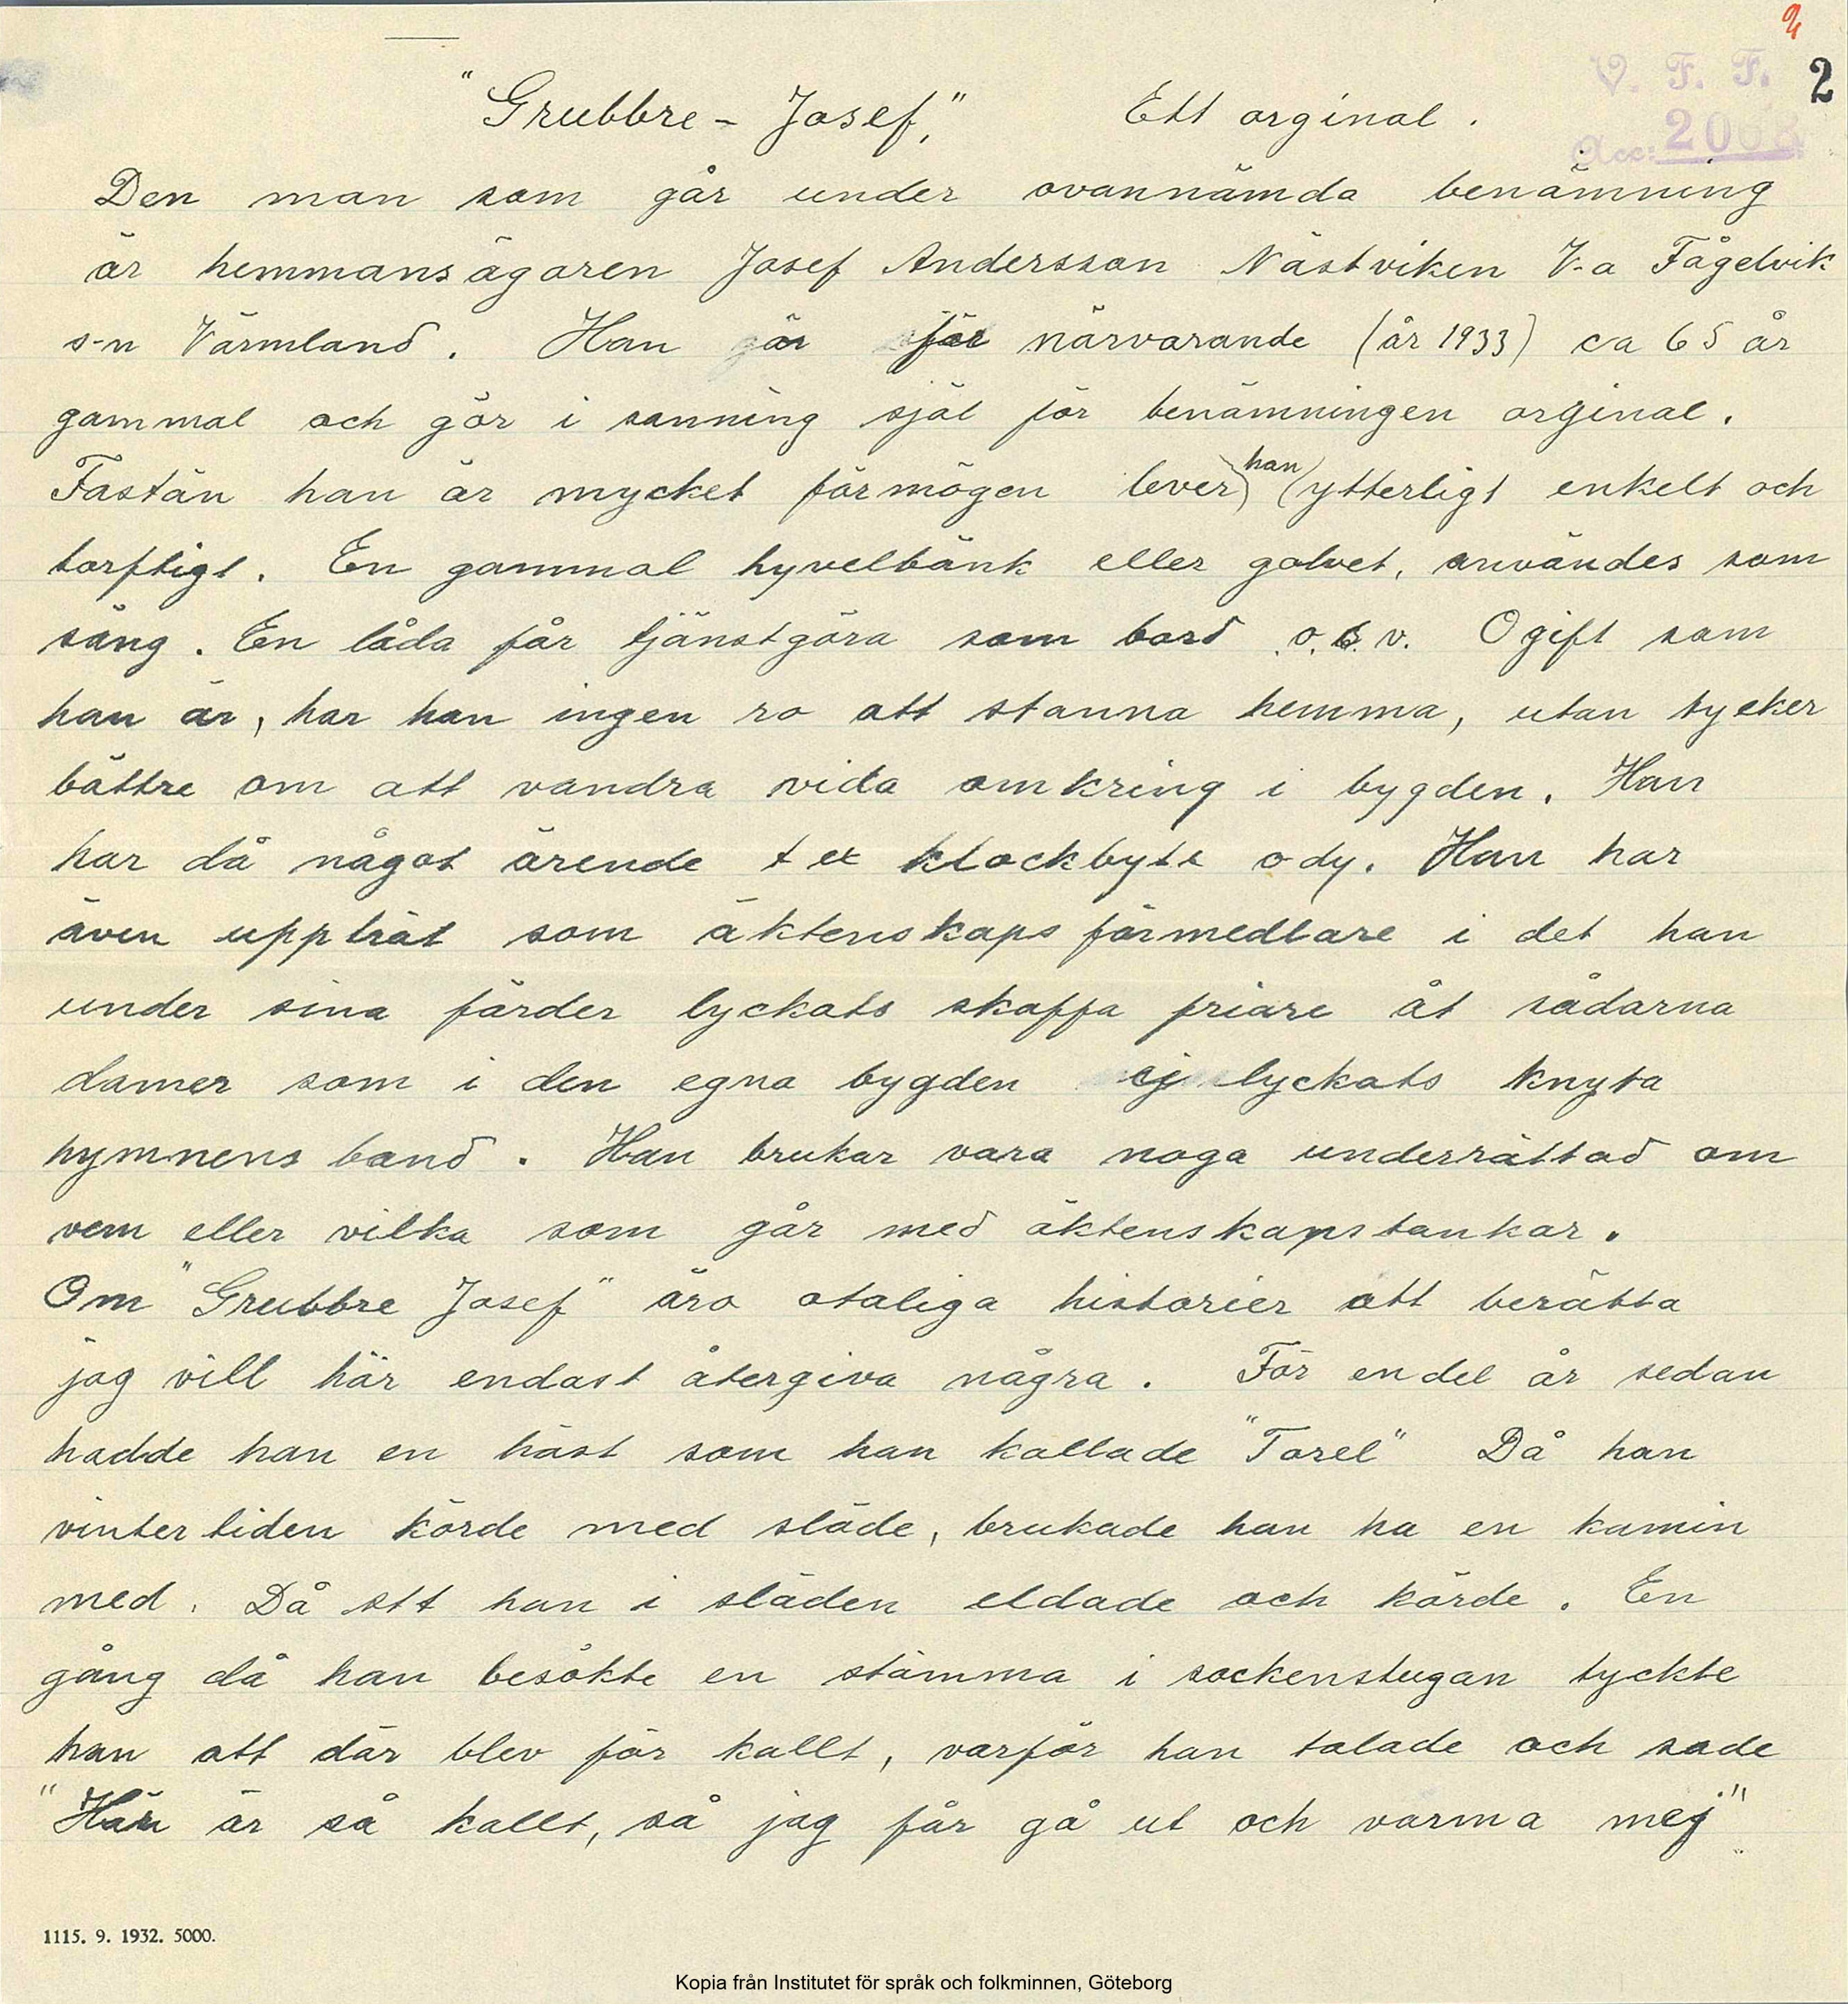 2
V. F. F. 2
Acc: 2068
"Grubbre - Josef," Ett orginal.
Den man som går under ovannämda benämning
är hemmansägaren Josef Andersson Nästviken V-a Fågelvik
s-n Värmland. Han är för närvarande (år 1933) ca 65 år
gammal och gör i sanning själ för benämningen orginal.
Fastän han är mycket förmögen lever han ytterligt enkelt och
torftigt. En gammal hyvelbänk eller golvet, användes som
säng. En låda får tjänstgöra som bord o.s.v. Ogift som
han är, har han ingen ro att stanna hemma, utan tycker
bättre om att vandra vida omkring i bygden. Han
har då något ärende t ex klockbyte ody. Han har
även uppträt som äktenskapsförmedlare i det han
under sina färder lyckats skaffa friare åt sådarna
damer som i den egna bygden ej lyckats knyta
hymnens band. Han brukar vara noga underrättad om
vem eller vilka som går med äktenskapstankar.
Om "Grubbre Josef" äro otaliga historier att berätta
jag vill här endast återgiva några. För en del år sedan
hadde han en häst som han kallade "Torel" Då han
vintertiden körde med släde, brukade han ha en kamin
med. Då stt han i släden eldade och körde. En
gång då han besökte en stämma i sockenstugan tyckte
han att där blev för kallt, varför han talade och sade
"Här är så kallt, så jag får gå ut och värma mej"
1115. 9. 1932. 5000.
Kopia från Institutet för språk och folkminnen, Göteborg